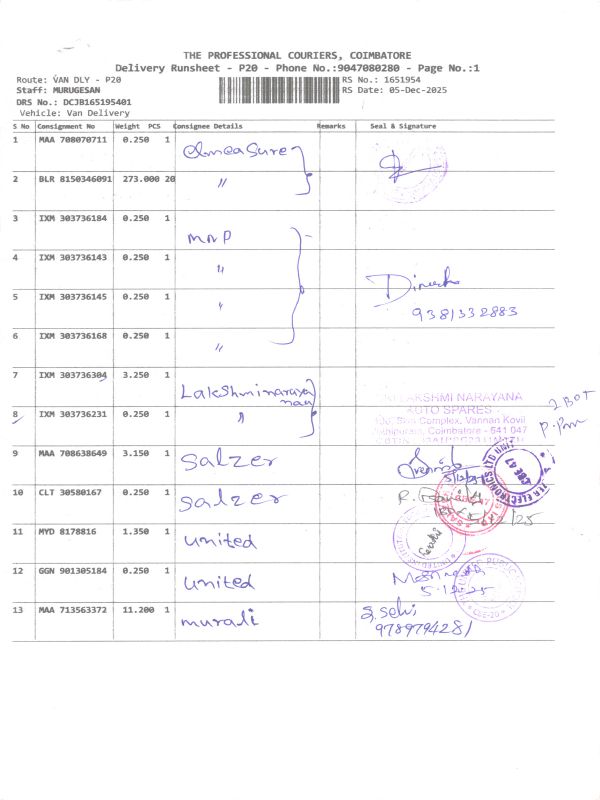 THE PROFESSIONAL COURIERS, COIMBATORE
Delivery Runsheet - P20 - Phone No.:9047080280 - Page No.:1
Route: VAN DLY - P20
RS No.: 1651954
Staff: MURUGESAN
RS Date: 05-Dec-2025
DRS No.: DCJB165195401
Vehicle: Van Delivery
S No Consignment No Weight PCS Consignee Details Remarks Seal & Signature
1 MAA 708070711 0.250 1
2 BLR 8150346091 273.000 20 "
3 IXM 303736184 0.250 1 MNP
4 IXM 303736143 0.250 1 "
5 IXM 303736145 0.250 1 " Dinesh
9381332883
6 IXM 303736168 0.250 1 "
7 IXM 303736304 3.250 1 Lakshminaraya
nan
LAKSHMI NARAYANA
AUTO SPARES
8 IXM 303736231 0.250 1 "
Complex, Vannan Kovil
Coimbatore - 641 047
9 MAA 708638649 3.150 1 Salzer
10 CLT 30580167 0.250 1 Salzer
11 MYD 8178816 1.350 1 United
12 GGN 901305184 0.250 1 United
5.12.25
13 MAA 713563372 11.200 1 murali S. Selvi
9789794281